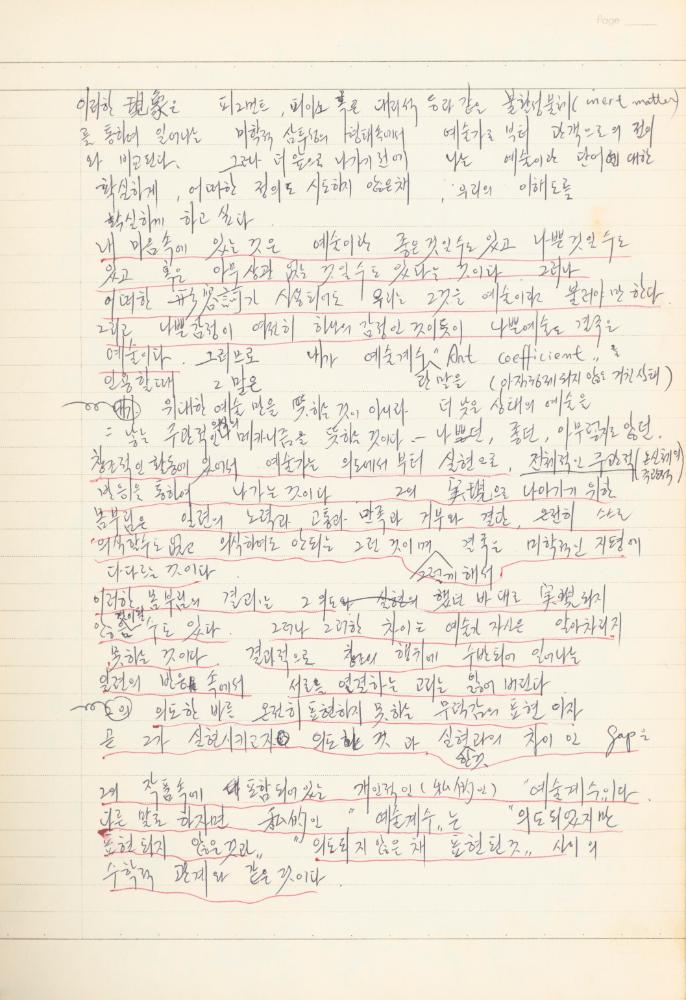 Page
이러한 現象은 피그먼트, 피아노 혹은 대리석 등과 같은 불활성물체(inert matter)
를 통하여 일어나는 미학적 삼투성의 형태속에서 예술가로 부터 관객으로의 전이
와 비교된다. 그러나 더 앞으로 나가기 전에 나는 예술이란 단어에 대한
확실하게, 어떠한 정의도 시도하지 않은채, 우리의 이해도를
확실하게 하고 싶다
내 마음속에 있는 것은 예술이란 좋은것일수도 있고 나쁜것일수도
있고 혹은 아무 상관 없는 것일수도 있다는 것이다 그러나
어떠한 形容詞가 사용되어도 우리는 그것을 예술이라고 불러야만 한다.
그리고 나쁜감정이 여전히 하나의 감정인 것이듯이 나쁜예술도 결국은
예술이다. 그러므로 내가 예술계수 "Art coefficient" 를
인용할때 그 말은 한 말을 (아직 정제 되지 않은 거친 상태)
내가 위대한 예술 만을 뜻하는 것이 아니라 더 낮은 상태의 예술을
낳는 주관적인 메카니즘을 뜻하는 것이다 — 나쁘던, 좋던, 아무렇지도 않던.
창조적인 활동에 있어서 예술가는 의도에서 부터 실현으로, 전체적인 주관적
반응을 통하여 나가는 것이다 그의 実現으로 나아가기 위한
몸부림은 일련의 노력과 고통과 만족과 거부와 결단, 온전히 스스로
의식할수도 없고 의식하여도 안되는 그런 것이며 결국은 미학적인 지평에
다다르는 것이다 그렇게 해서
이러한 몸부림의 결과는 그 의도와 실현의 했던 바 대로 実現되지
않은 것이랄 수도 있다. 그러나 그러한 차이는 예술가 자신은 알아차리지
못하는 것이다 결과적으로 창조의 행위에 수반되어 일어나는
일련의 반응 속에서 서로를 연결하는 고리는 잃어 버린다
그의 의도한 바를 온전히 표현하지 못하는 무력감의 표현 이자
곧 그가 실현시키고자 의도한 것 과 실현과의 차이 인 gap은
한것
그의 작품속에 포함되어 있는 개인적인 (私的인) "예술계수"이다.
다른 말로 하자면 私的인 "예술계수"는 "의도되었지만
표현되지 않은것과" "의도되지 않은 채 표현된것" 사이의
수학적 관계와 같은 것이다.